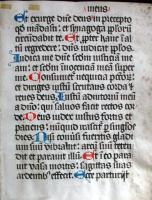 meis
Et exurge dñe deus in precepto
qd mādasti: et synagoga plorū
circūdabit te. Et ppter hanc ī al
tū regredere: dñs iudicat plos.
Iudica me dñe scdm iusticiā me
am: et scdm innocenciā meā super
me. Consumet nequicia pctor:
et diriges iustū scrutans corda et
renes deus. Iustū adiutoriū meū
a dño: qui saluos facit rectos corde
Deus iudex iustus fortis et
paciens: nūquid irascit p singlos
dies. Nisi cōuersi fueritis gladiū
suū vibrabit: arcū suū teten
dit et parauit illū. Et ī eo para
uit vasa mortis: sagittas suas
ardentib effecit. Ecce parturiit